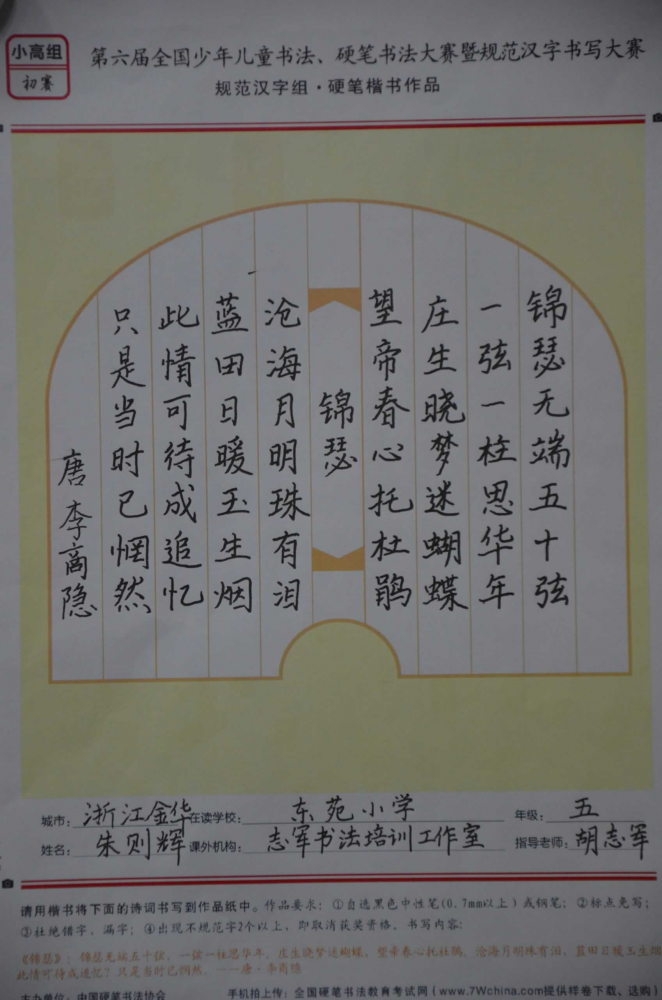 小高组
初赛
第六届全国少年儿童书法、硬笔书法大赛暨规范汉字书写大赛
规范汉字组·硬笔楷书作品
锦瑟无端五十弦
一弦一柱思华年
庄生晓梦迷蝴蝶
望帝春心托杜鹃
锦瑟
沧海月明珠有泪
蓝田日暖玉生烟
此情可待成追忆
只是当时已惘然
唐 李商隐
城市：浙江金华 在读学校：东苑小学 年级：五
姓名：朱则辉 课外机构：志军书法培训工作室 指导老师：胡志军
请用楷书将下面的诗词书写到作品纸中。作品要求：①自选黑色中性笔(0.7mm以上)或钢笔；②标点免写；
③杜绝错字、漏字；④出现不规范字2个以上，即取消获奖资格。书写内容：
《锦瑟》：锦瑟无端五十弦，一弦一柱思华年。庄生晓梦迷蝴蝶，望帝春心托杜鹃。沧海月明珠有泪，蓝田日暖玉生烟
此情可待成追忆？只是当时已惘然。——唐·李商隐
主办单位：中国硬笔书法协会 手机拍上传：全国硬笔书法教育考试网（www.7Wchina.com提供样卷下载、选购）